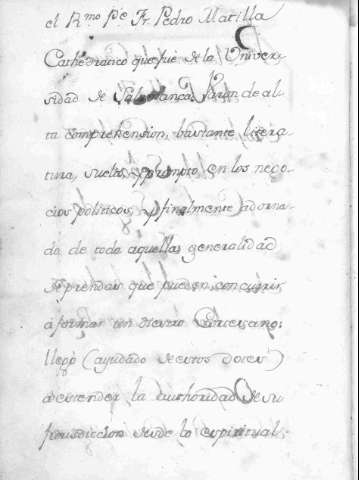 el R.mo P.e Fr. Pedro Matilla
Cathedratico que fue de la Univer-
sidad de Salamanca, Varon de al-
ta comprehension, bastante litera
tura, suelto, y prompto en los nego-
cios politicos, y finalmente adorna-
do de toda aquella generalidad
de prendas que pueden concurrir
á formar un diestro Cortesano:
llegò (ayudado de estos dotes)
á estender la authoridad de su
jurisdiccion desde lo espiritual,